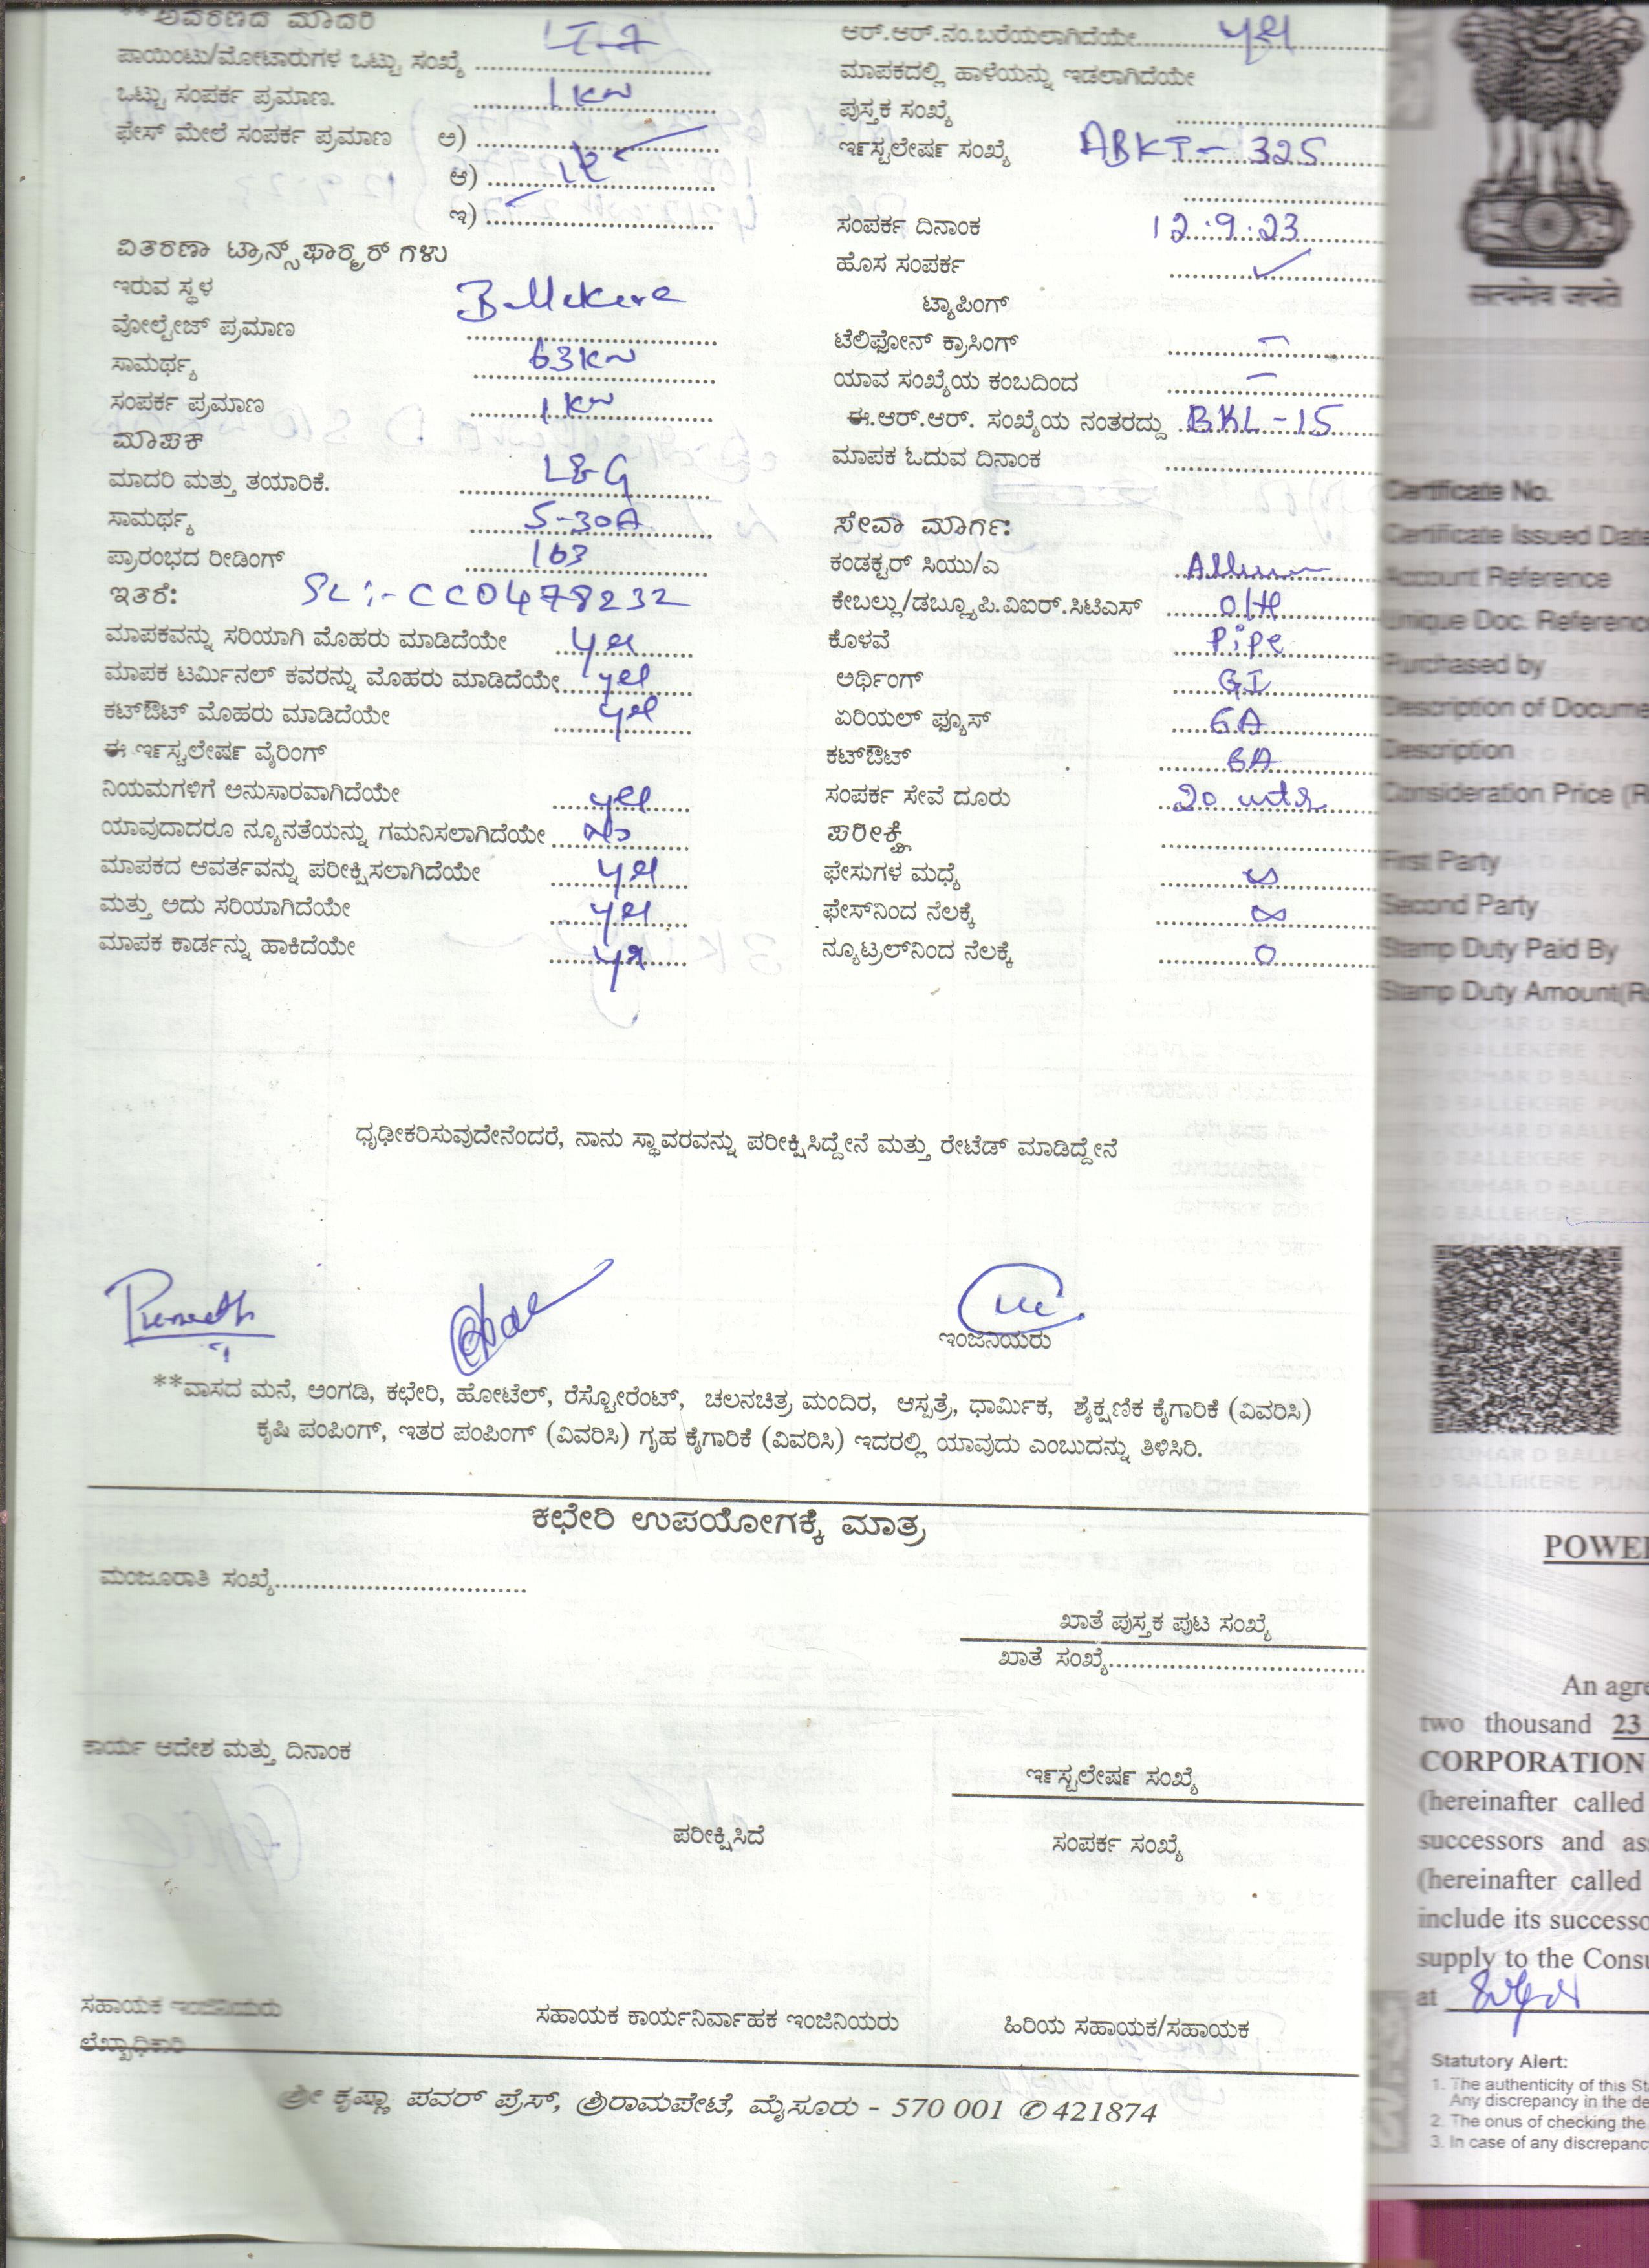 **ಆವರಣದ ಮಾದರಿ
ಪಾಯಿಂಟು/ಮೋಟಾರುಗಳ ಒಟ್ಟು ಸಂಖ್ಯೆ
ಒಟ್ಟು ಸಂಪರ್ಕ ಪ್ರಮಾಣ. 1 KW
ಫೇಸ್ ಮೇಲೆ ಸಂಪರ್ಕ ಪ್ರಮಾಣ ಅ)
ಆ)
ಇ)
ವಿತರಣಾ ಟ್ರಾನ್ಸ್‌ಫಾರ್ಮರ್ ಗಳು
ಇರುವ ಸ್ಥಳ Ballekere
ವೋಲ್ಟೇಜ್ ಪ್ರಮಾಣ
ಸಾಮರ್ಥ್ಯ 63 KW
ಸಂಪರ್ಕ ಪ್ರಮಾಣ 1 KW
ಮಾಪಕ
ಮಾದರಿ ಮತ್ತು ತಯಾರಿಕೆ. L&G
ಸಾಮರ್ಥ್ಯ 5-30A
ಪ್ರಾರಂಭದ ರೀಡಿಂಗ್ 163
ಇತರೆ: SL:- CC0478232
ಮಾಪಕವನ್ನು ಸರಿಯಾಗಿ ಮೊಹರು ಮಾಡಿದೆಯೇ yes
ಮಾಪಕ ಟರ್ಮಿನಲ್ ಕವರನ್ನು ಮೊಹರು ಮಾಡಿದೆಯೇ yes
ಕಟ್‌ಔಟ್ ಮೊಹರು ಮಾಡಿದೆಯೇ yes
ಈ ಇನ್‌ಸ್ಟಲೇಷನ್ ವೈರಿಂಗ್
ನಿಯಮಗಳಿಗೆ ಅನುಸಾರವಾಗಿದೆಯೇ yes
ಯಾವುದಾದರೂ ನ್ಯೂನತೆಯನ್ನು ಗಮನಿಸಲಾಗಿದೆಯೇ No
ಮಾಪಕದ ಆವರ್ತವನ್ನು ಪರೀಕ್ಷಿಸಲಾಗಿದೆಯೇ yes
ಮತ್ತು ಅದು ಸರಿಯಾಗಿದೆಯೇ yes
ಮಾಪಕ ಕಾರ್ಡನ್ನು ಹಾಕಿದೆಯೇ yes
ಆರ್.ಆರ್.ನಂ.ಬರೆಯಲಾಗಿದೆಯೇ yes
ಮಾಪಕದಲ್ಲಿ ಹಾಳೆಯನ್ನು ಇಡಲಾಗಿದೆಯೇ
ಪುಸ್ತಕ ಸಂಖ್ಯೆ
ಇನ್‌ಸ್ಟಲೇಷನ್ ಸಂಖ್ಯೆ ABKT - 325
ಸಂಪರ್ಕ ದಿನಾಂಕ 12.9.23
ಹೊಸ ಸಂಪರ್ಕ ✓
ಟ್ಯಾಪಿಂಗ್
ಟೆಲಿಫೋನ್ ಕ್ರಾಸಿಂಗ್ -
ಯಾವ ಸಂಖ್ಯೆಯ ಕಂಬದಿಂದ -
ಈ.ಆರ್.ಆರ್. ಸಂಖ್ಯೆಯ ನಂತರದ್ದು BKL - 15
ಮಾಪಕ ಓದುವ ದಿನಾಂಕ
ಸೇವಾ ಮಾರ್ಗ:
ಕಂಡಕ್ಟರ್ ಸಿಯು/ಎ
ಕೇಬಲ್ಲು/ಡಬ್ಲ್ಯೂ.ಪಿ.ವಿಐಆರ್.ಸಿಟಿಎಸ್ O/H
ಕೊಳವೆ Pipe
ಅರ್ಥಿಂಗ್ GI
ಏರಿಯಲ್ ಫ್ಯೂಸ್ 6A
ಕಟ್‌ಔಟ್ 6A
ಸಂಪರ್ಕ ಸೇವೆ ದೂರು 20 mtr
ಪರೀಕ್ಷೆ
ಫೇಸುಗಳ ಮಧ್ಯೆ ∞
ಫೇಸ್‌ನಿಂದ ನೆಲಕ್ಕೆ ∞
ನ್ಯೂಟ್ರಲ್‌ನಿಂದ ನೆಲಕ್ಕೆ 0
ಧೃಢೀಕರಿಸುವುದೇನೆಂದರೆ, ನಾನು ಸ್ಥಾವರವನ್ನು ಪರೀಕ್ಷಿಸಿದ್ದೇನೆ ಮತ್ತು ರೇಟೆಡ್ ಮಾಡಿದ್ದೇನೆ
Puneeth
ಇಂಜಿನಿಯರು
**ವಾಸದ ಮನೆ, ಅಂಗಡಿ, ಕಛೇರಿ, ಹೋಟೆಲ್, ರೆಸ್ಟೋರೆಂಟ್, ಚಲನಚಿತ್ರ ಮಂದಿರ, ಆಸ್ಪತ್ರೆ, ಧಾರ್ಮಿಕ, ಶೈಕ್ಷಣಿಕ ಕೈಗಾರಿಕೆ (ವಿವರಿಸಿ)
ಕೃಷಿ ಪಂಪಿಂಗ್, ಇತರ ಪಂಪಿಂಗ್ (ವಿವರಿಸಿ) ಗೃಹ ಕೈಗಾರಿಕೆ (ವಿವರಿಸಿ) ಇದರಲ್ಲಿ ಯಾವುದು ಎಂಬುದನ್ನು ತಿಳಿಸಿರಿ.
ಕಛೇರಿ ಉಪಯೋಗಕ್ಕೆ ಮಾತ್ರ
ಮಂಜೂರಾತಿ ಸಂಖ್ಯೆ
ಖಾತೆ ಪುಸ್ತಕ ಪುಟ ಸಂಖ್ಯೆ
ಖಾತೆ ಸಂಖ್ಯೆ
ಕಾರ್ಯ ಆದೇಶ ಮತ್ತು ದಿನಾಂಕ
ಇನ್‌ಸ್ಟಲೇಷನ್ ಸಂಖ್ಯೆ
ಪರೀಕ್ಷಿಸಿದೆ
ಸಂಪರ್ಕ ಸಂಖ್ಯೆ
ಸಹಾಯಕ ಇಂಜಿನಿಯರು
ಸಹಾಯಕ ಕಾರ್ಯನಿರ್ವಾಹಕ ಇಂಜಿನಿಯರು
ಹಿರಿಯ ಸಹಾಯಕ/ಸಹಾಯಕ
ಲೆಖ್ಖಾಧಿಕಾರಿ
ಶ್ರೀ ಕೃಷ್ಣಾ ಪವರ್ ಪ್ರೆಸ್, ಶ್ರೀರಾಮಪೇಟೆ, ಮೈಸೂರು - 570 001 ✆ 421874
सत्यमेव जयते
Certificate No.
Certificate Issued Date
Account Reference
Unique Doc. Reference
Purchased by
Description of Docume
Description
Consideration Price (R
First Party
Second Party
Stamp Duty Paid By
Stamp Duty Amount(R
POWE
An agre
two thousand 23
CORPORATION
(hereinafter called
successors and as
(hereinafter called
include its successo
supply to the Consu
at
Statutory Alert:
1. The authenticity of this St
Any discrepancy in the de
2. The onus of checking the
3. In case of any discrepanc